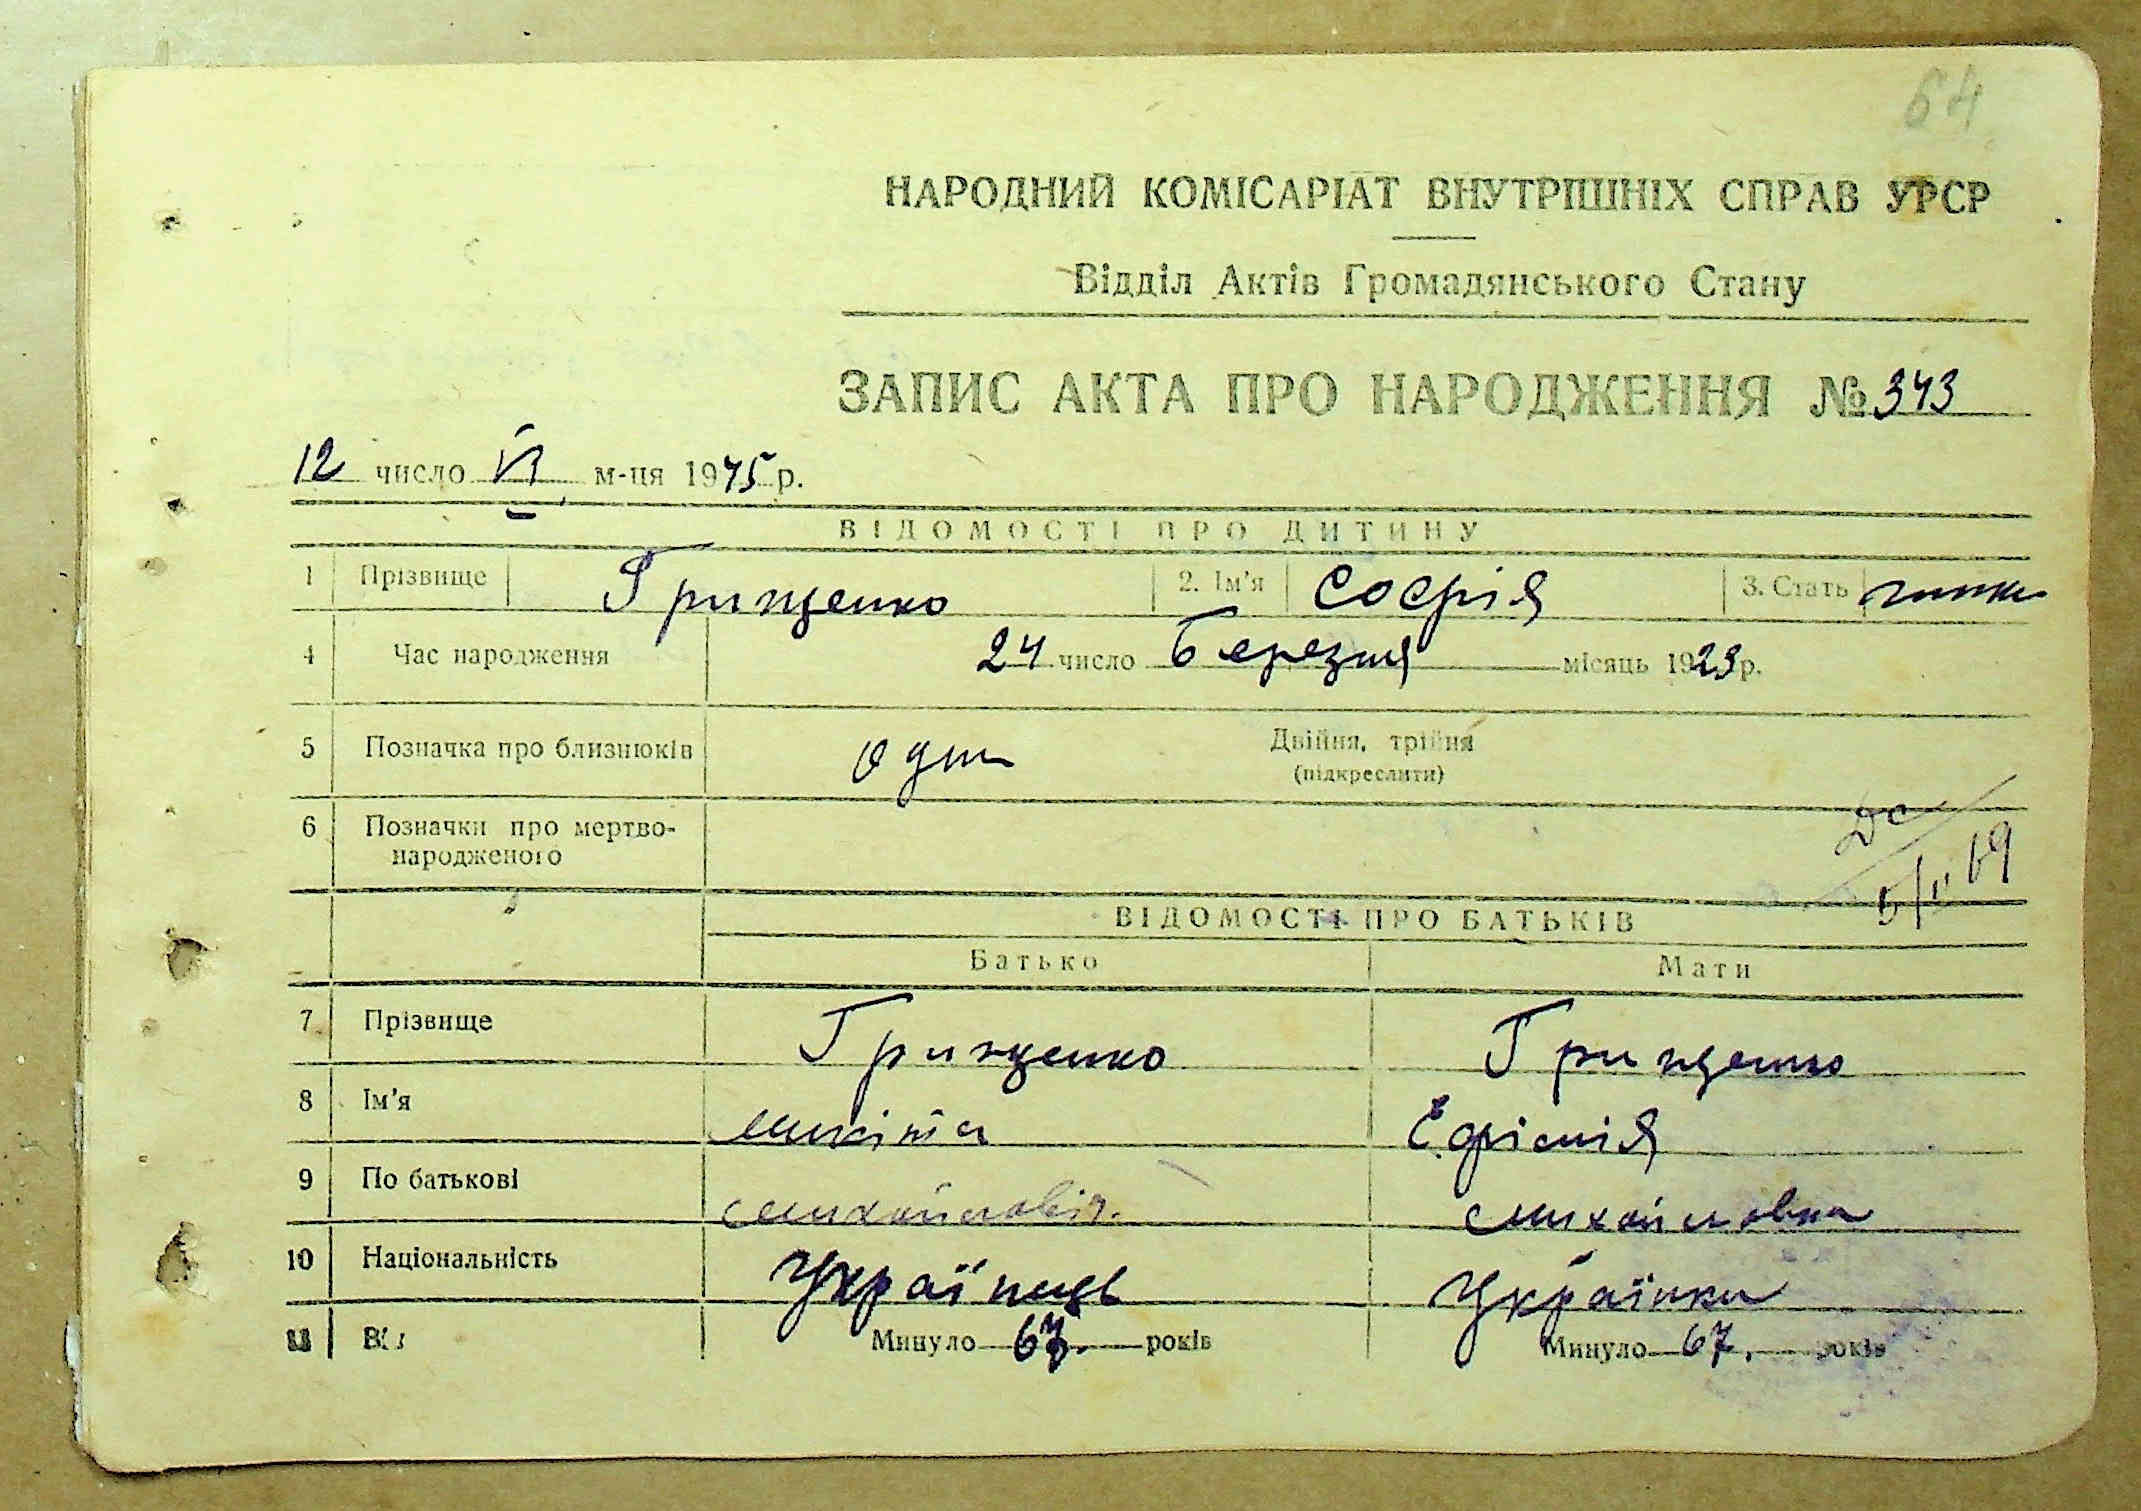 64
НАРОДНИЙ КОМІСАРІАТ ВНУТРІШНІХ СПРАВ УРСР
Відділ Актів Громадянського Стану
ЗАПИС АКТА ПРО НАРОДЖЕННЯ № 343
12 число VI м-ця 1945 р.
ВІДОМОСТІ ПРО ДИТИНУ
1 Прізвище Грищенко 2. Ім'я Софія 3. Стать
4 Час народження 24 число Березня місяць 1923 р.
5 Позначка про близнюків один Двійня, трійня
(підкреслити)
6 Позначки про мертво-
народженого
69
ВІДОМОСТІ ПРО БАТЬКІВ
Батько Мати
7 Прізвище Грищенко Грищенко
8 Ім'я микіта Ефімія
9 По батькові михайлович. михайловна
10 Національність Українець Українка
11 Минуло 67. років Минуло 67. років